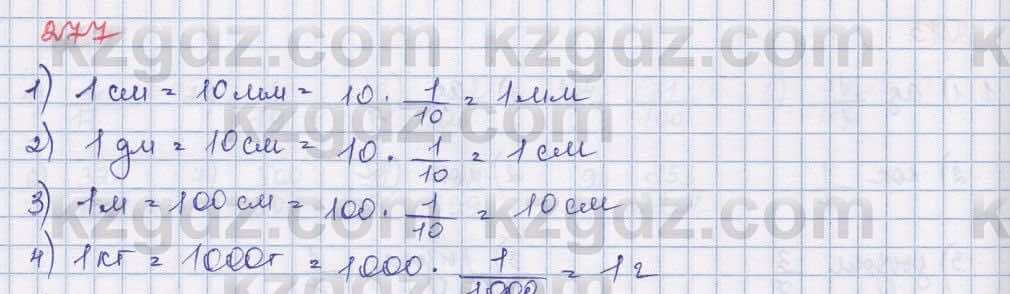 277
1) 1 см = 10 мм = 10 · 1/10 = 1 мм
2) 1 дм = 10 см = 10 · 1/10 = 1 см
3) 1 м = 100 см = 100 · 1/10 = 10 см
4) 1 кг = 1000 г = 1000 · 1/1000 = 1 г
kzgdz.com kzgdz.com
kzgdz.com
kzgdz.com kzgdz.com